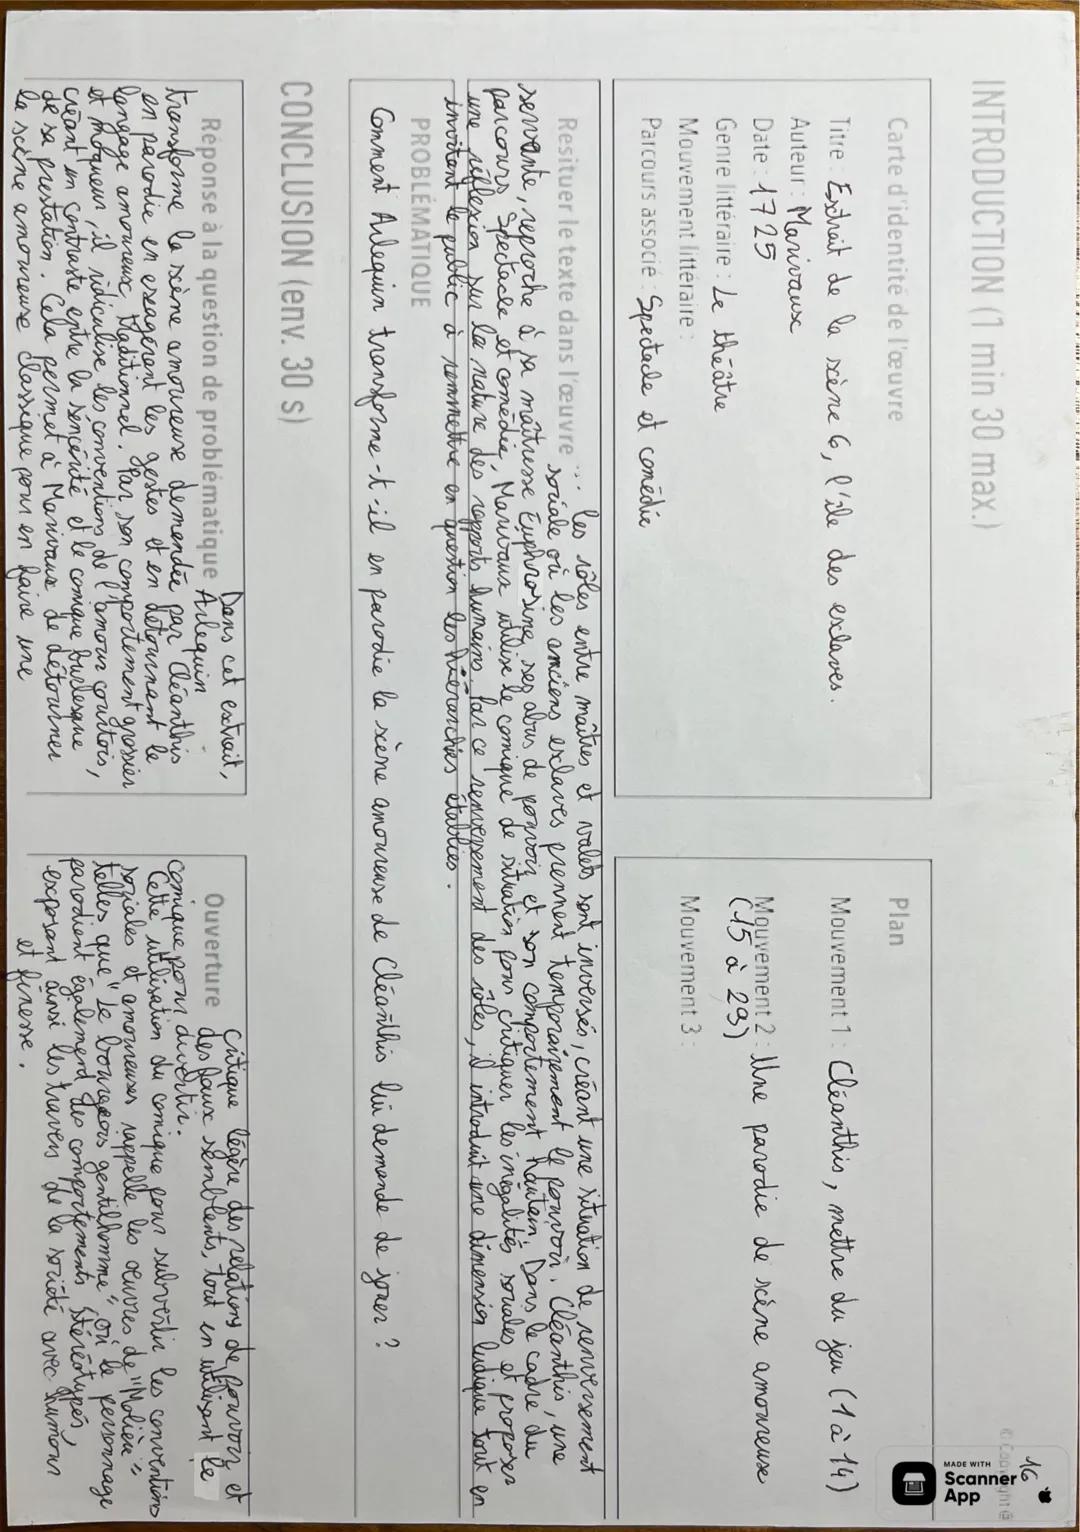 INTRODUCTION (1 min 30 max.)
16
Carte d'identité de l'œuvre
Titre : Extrait de la scène 6, l'île des esclaves.
Auteur : Marivaux
Date : 1725
Genre littéraire : Le théâtre
Mouvement littéraire :
Parcours associé : Spectacle et comédie
Plan
Mouvement 1 : Cléanthis, mettre du jeu (1 à 14)
Mouvement 2 : Une parodie de scène amoureuse
(15 à 29)
Mouvement 3 :
Resituer le texte dans l'œuvre ... les rôles entre maîtres et valets sont inversés, créant une situation de renversement
sociale où les anciens esclaves prennent temporairement le pouvoir. Cléanthis, une
servante, reproche à sa maîtresse Euphrosine, ses abus de pouvoir et son comportement hautain. Dans le cadre du
parcours Spectacle et comédie, Marivaux utilise le comique de situation pour critiquer les inégalités sociales et proposer
une réflexion sur la nature des rapports humains. Par ce renversement des rôles, il introduit une dimension ludique tout en
invitant le public à remmettre en question les hiérarchies établies.
PROBLÉMATIQUE
Comment Arlequin transforme-t-il en parodie la scène amoureuse de Cléanthis lui demande de jouer ?
CONCLUSION (env. 30 s)
Réponse à la question de problématique Dans cet extrait,
Arlequin
transforme la scène amoureuse demendée par Cléanthis
en parodie en exagérant les gestes et en détournant le
langage amoureux traditionnel. Par son comportement grossier
et moqueur, il ridiculise les conventions de l'amour courtois,
créant un contraste entre la sencérité et le comique burlesque
de sa prestation. Cela permet à Marivaux de détourner
la scène amoureuse classique pour en faire une
Ouverture Critique légère des relations de pouvoir et
des faux semblants, tout en utilisant le
comique pour divertir.
Cette utilisation du comique pour subvertir les conventions
sociales et amoureuses rappelle les œuvres de "Molière"
telles que "Le bourgeois gentilhomme" où le personnage
parodient également des comportements stéréotypés,
exposant ainsi les travers de la société avec humour
et finesse.
MADE WITH
Scanner
App